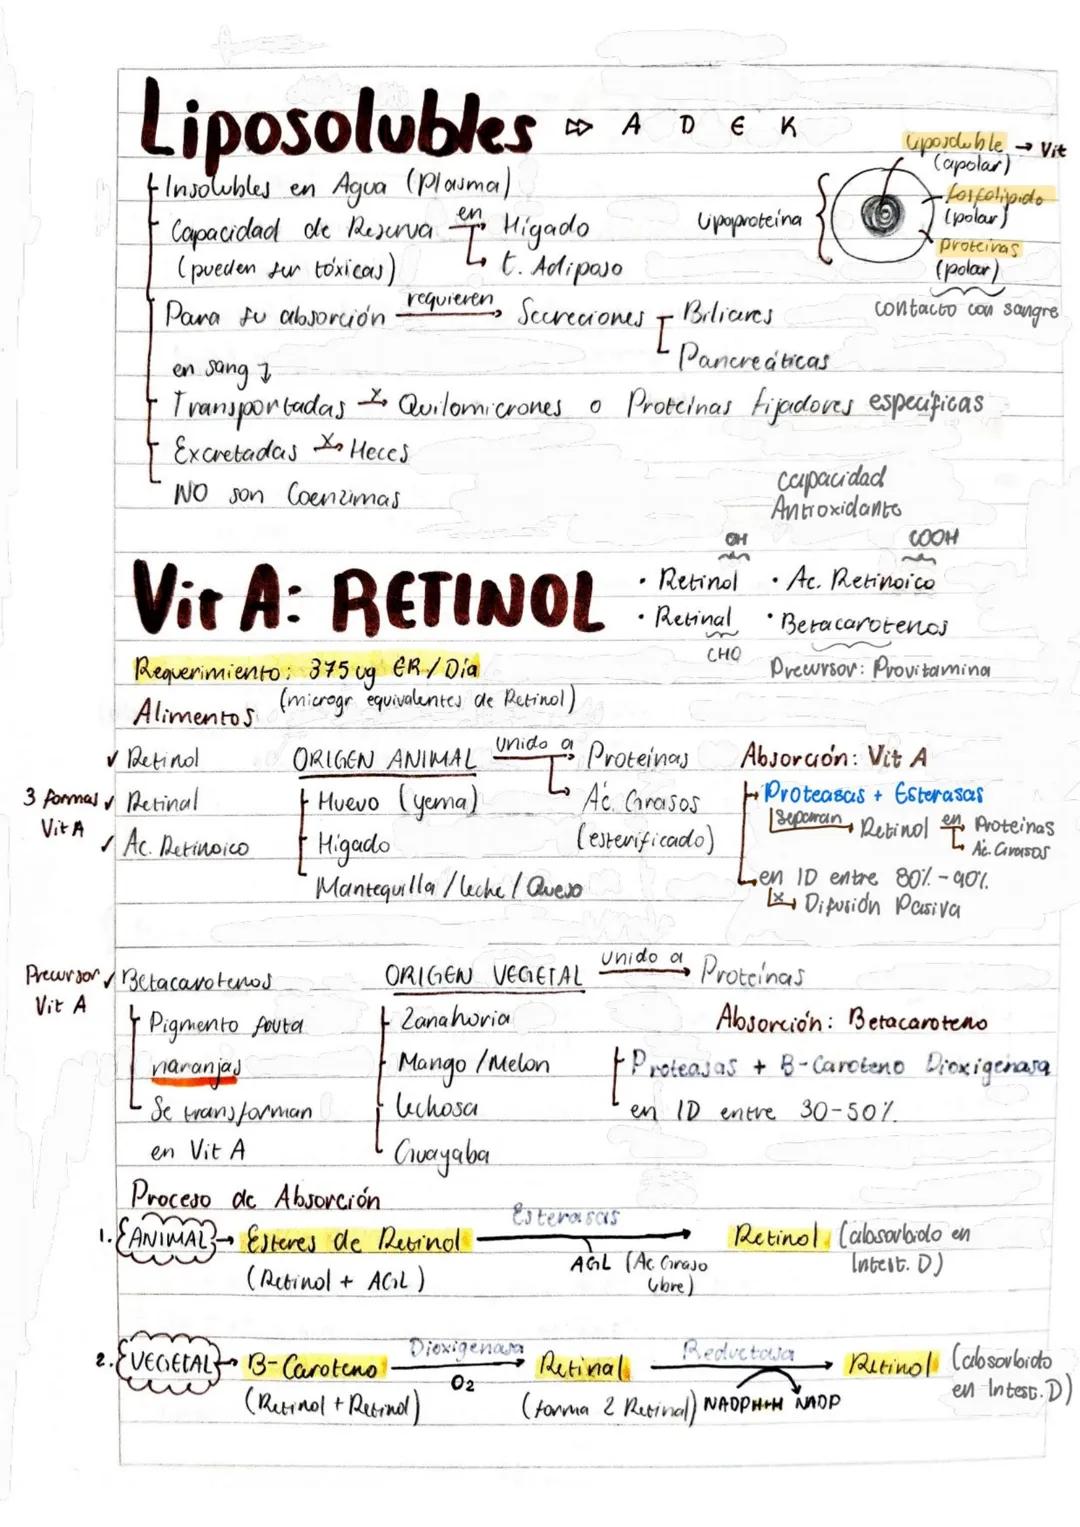 Liposolubles ⇨ A D E K
Insolubles en Agua (Plasma)
Capacidad de Reserva en Hígado
(pueden ser tóxicas) t. Adiposo
Para su absorción requieren Secreciones Biliares
Pancreáticas
en sang
Transportadas x Quilomicrones o Proteínas fijadores específicas
Excretadas x Heces
NO son Coenzimas
Lipoproteína
Liposoluble → Vit
(apolar)
fosfolípido
(polar)
Proteínas
(polar)
contacto con sangre
capacidad
Antioxidante
Vit A: RETINOL
OH
COOH
• Retinol • Ac. Retinoico
• Retinal • Betacarotenos
CHO
Precursor: Provitamina
Requerimiento: 375 ug ER/Día
(microgr equivalentes de Retinol)
Alimentos
3 formas Vit A
✓ Retinol
✓ Retinal
✓ Ac. Retinoico
ORIGEN ANIMAL unido a Proteínas
Ac. Grasos
(esterificado)
Huevo (yema)
Hígado
Mantequilla / leche / Queso
Absorción: Vit A
Proteasas + Esterasas
separan Retinol en Proteínas
Ac. Grasos
en ID entre 80%-90%
x Difusión Pasiva
Precursor Vit A
✓ Betacarotenos
Pigmento fruta
naranjas
Se transforman
en Vit A
ORIGEN VEGETAL unido a Proteínas
Zanahoria
Mango / Melon
Lechosa
Guayaba
Absorción: Betacaroteno
Proteasas + B-Caroteno Dioxigenasa
en ID entre 30-50%
Proceso de Absorción
1. ANIMAL → Esteres de Retinol Esterasas Retinol (absorbido en
Intest. D)
(Retinol + AGL)
AGL (Ac. Graso
libre)
2. VEGETAL → B-Caroteno Dioxigenasa Retinal Reductasa Retinol (absorbido
en Intest. D)
O2
(Retinol + Retinol)
(forma 2 Retinal) NADPH+H NADP